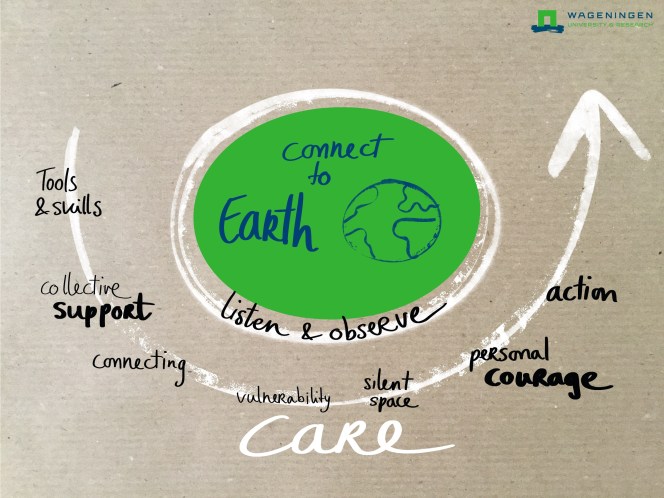 WAGENINGEN
UNIVERSITY & RESEARCH
connect
to
Earth
listen & observe
Tools
& skills
collective
support
connecting
vulnerability
silent
space
personal
courage
action
care